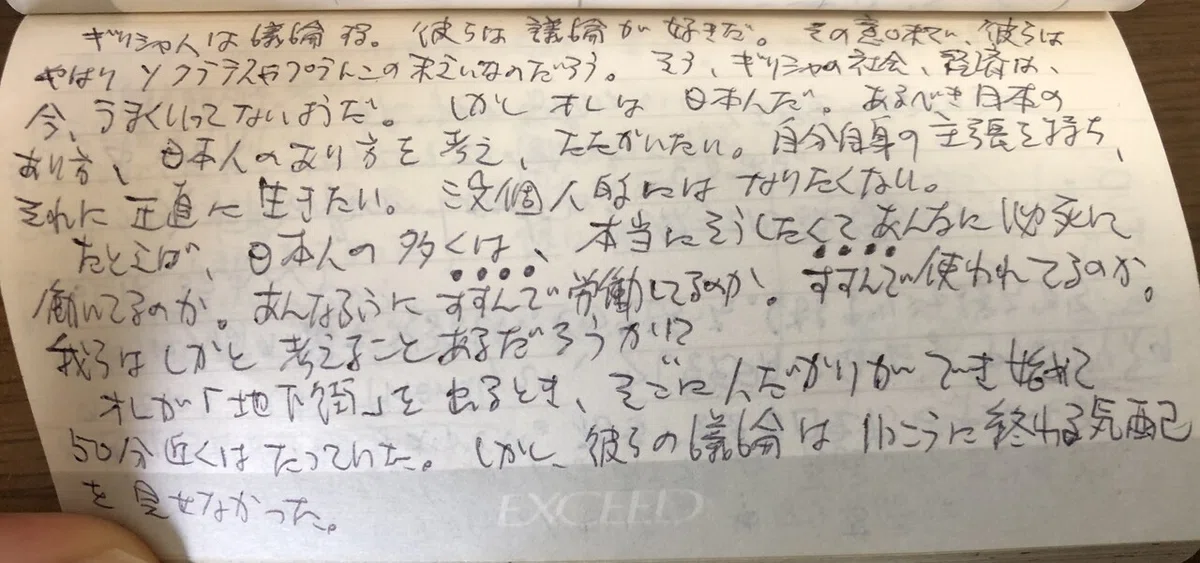 ギリシャ人は議論好。彼らは議論が好きだ。その意味で、彼らは
やはりソクラテスやプラトンの末えいなのだろう。そう、ギリシャの社会、経済は、
今、うまくいってないようだ。しかしオレは日本人だ。あるべき日本の
あり方、日本人のあり方を考え、たたかいたい。自分自身の主張を持ち、
それに正直に生きたい。没個人的にはなりたくない。
たとえば、日本人の多くは、本当にそうしたくてあんなに必死に
働いてるのか。あんなふうにすすんで労働してるのか。すすんで使われてるのか。
我らはしかと考えることあるだろうか!?
オレが「地下街」を出るとき、そこに人だかりができ始めて
50分近くはたっていた。しかし、彼らの議論はいっこうに終わる気配
を見せなかった。
EXCEED